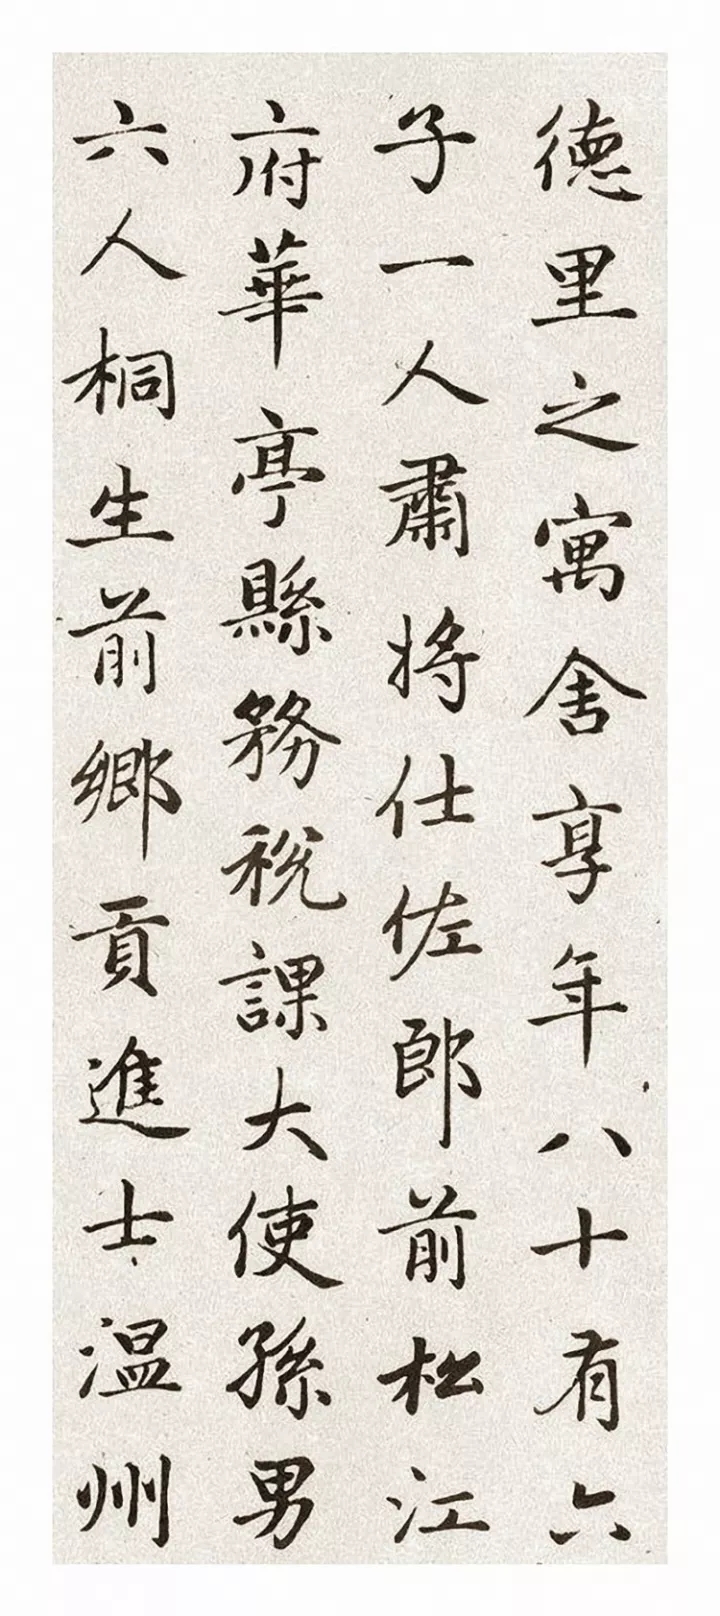 德里之寓舍享年八十有六
子一人肅将仕佐郎前松江
府華亭縣務稅課大使孫男
六人桐生前鄉貢進士溫州